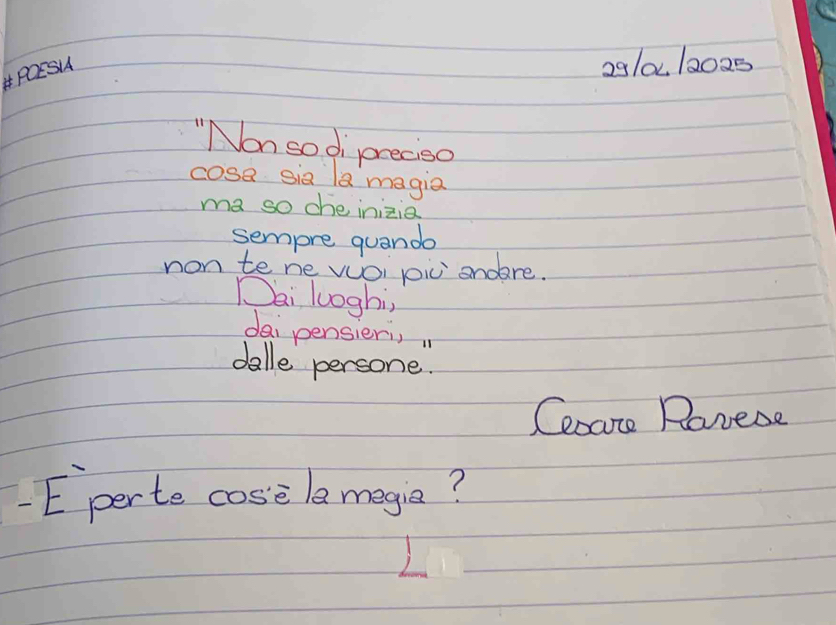 #POESIA
29/04/2025
"Non so di preciso
cosa sia la magia
ma so che inizia
sempre quando
non te ne vuoi più andare.
Dai luoghi,
dai pensieri,
dalle persone."
Cesare Pavese
- È per te cos'è la magia?
L